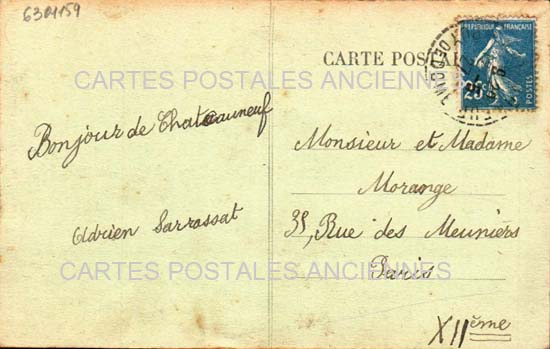 6304159
CARTE POS
REPUBLIQUE FRANÇAISE
25
POSTES
CARTES POSTALES ANCIENNES
Bonjour de Chateauneuf
Adrien Sarrassat
Monsieur et Madame
Morange
35, Rue des Meuniers
Paris
XIIème
CARTES POSTALES ANCIENNES